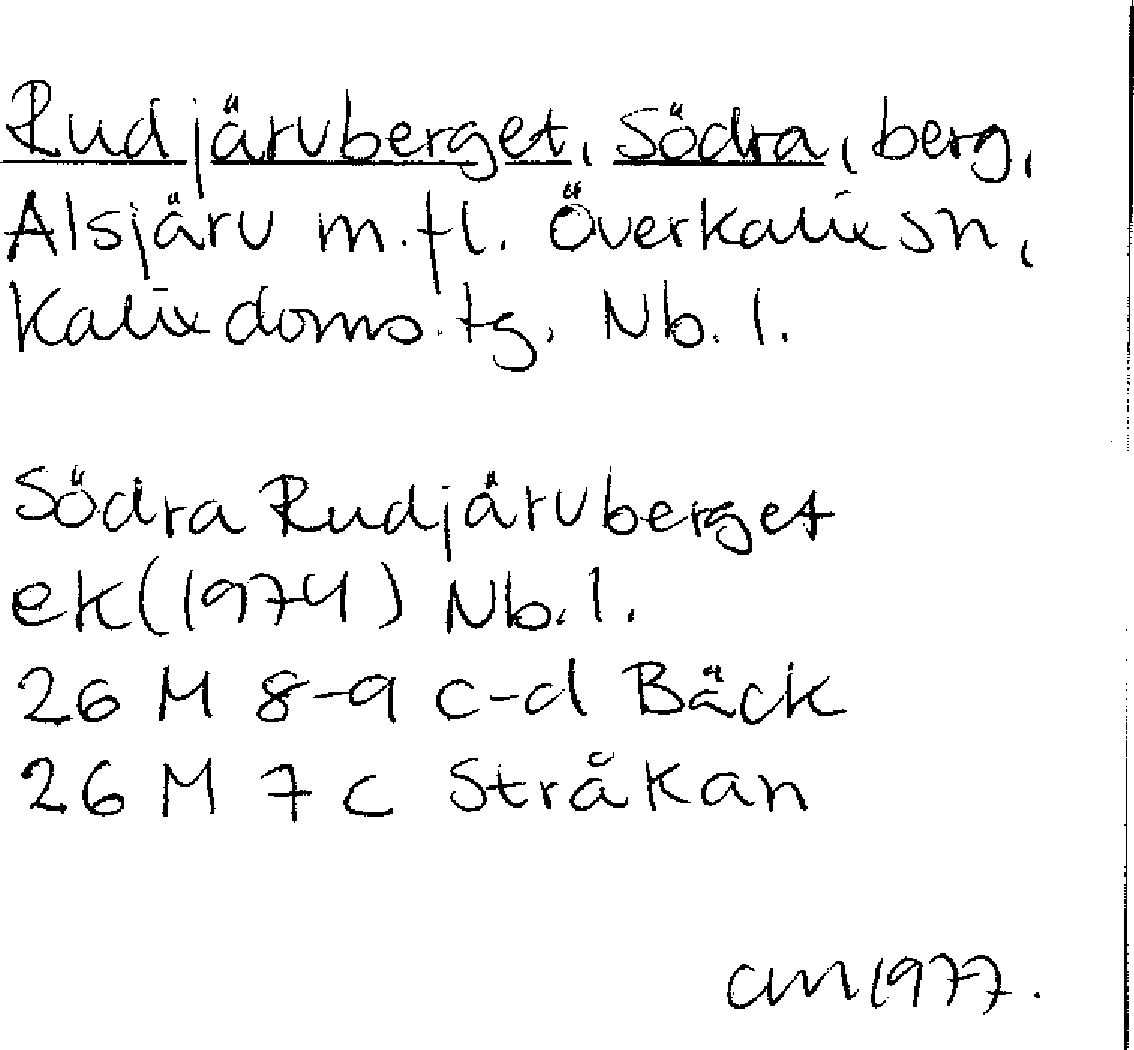 Rudjärvberget, Södra, berg,
Alsjärv m.fl. Överkalix sn,
Kalix doms.tg. Nb. l.
Södra Rudjärvberget
ek (1974) Nb. l.
26 M 8-9 c-d Bäck
26 M 7 c Stråkan
CM 1977.